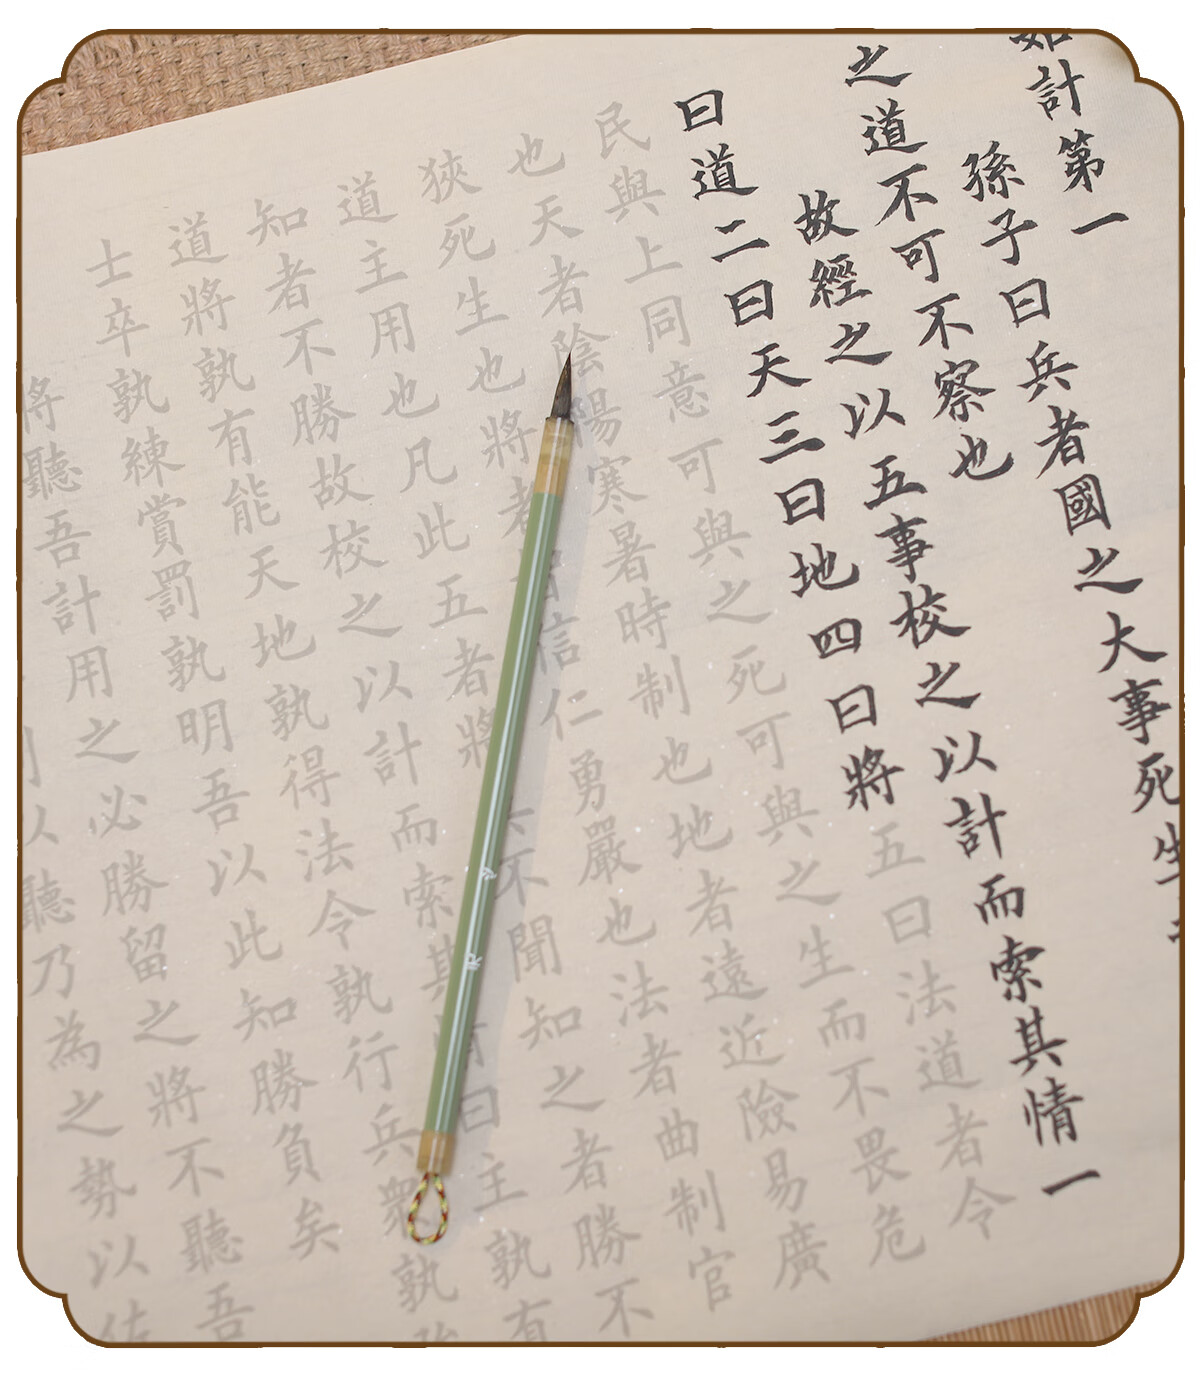 計第一
孫子曰兵者國之大事死生
之道不可不察也
故經之以五事校之以計而索其情一
曰道二曰天三曰地四曰將五曰法道者令
民與上同意可與之死可與之生而不畏危
也天者陰陽寒暑時制也地者遠近險易廣
狹死生也將者智信仁勇嚴也法者曲制官
道主用也凡此五者將不聞知之者勝不
知者不勝故校之以計而索其情曰主孰有
道將孰有能天地孰得法令孰行兵衆孰
士卒孰練賞罰孰明吾以此知勝負矣
將聽吾計用之必勝留之將不聽吾
以聽乃為之勢以佐